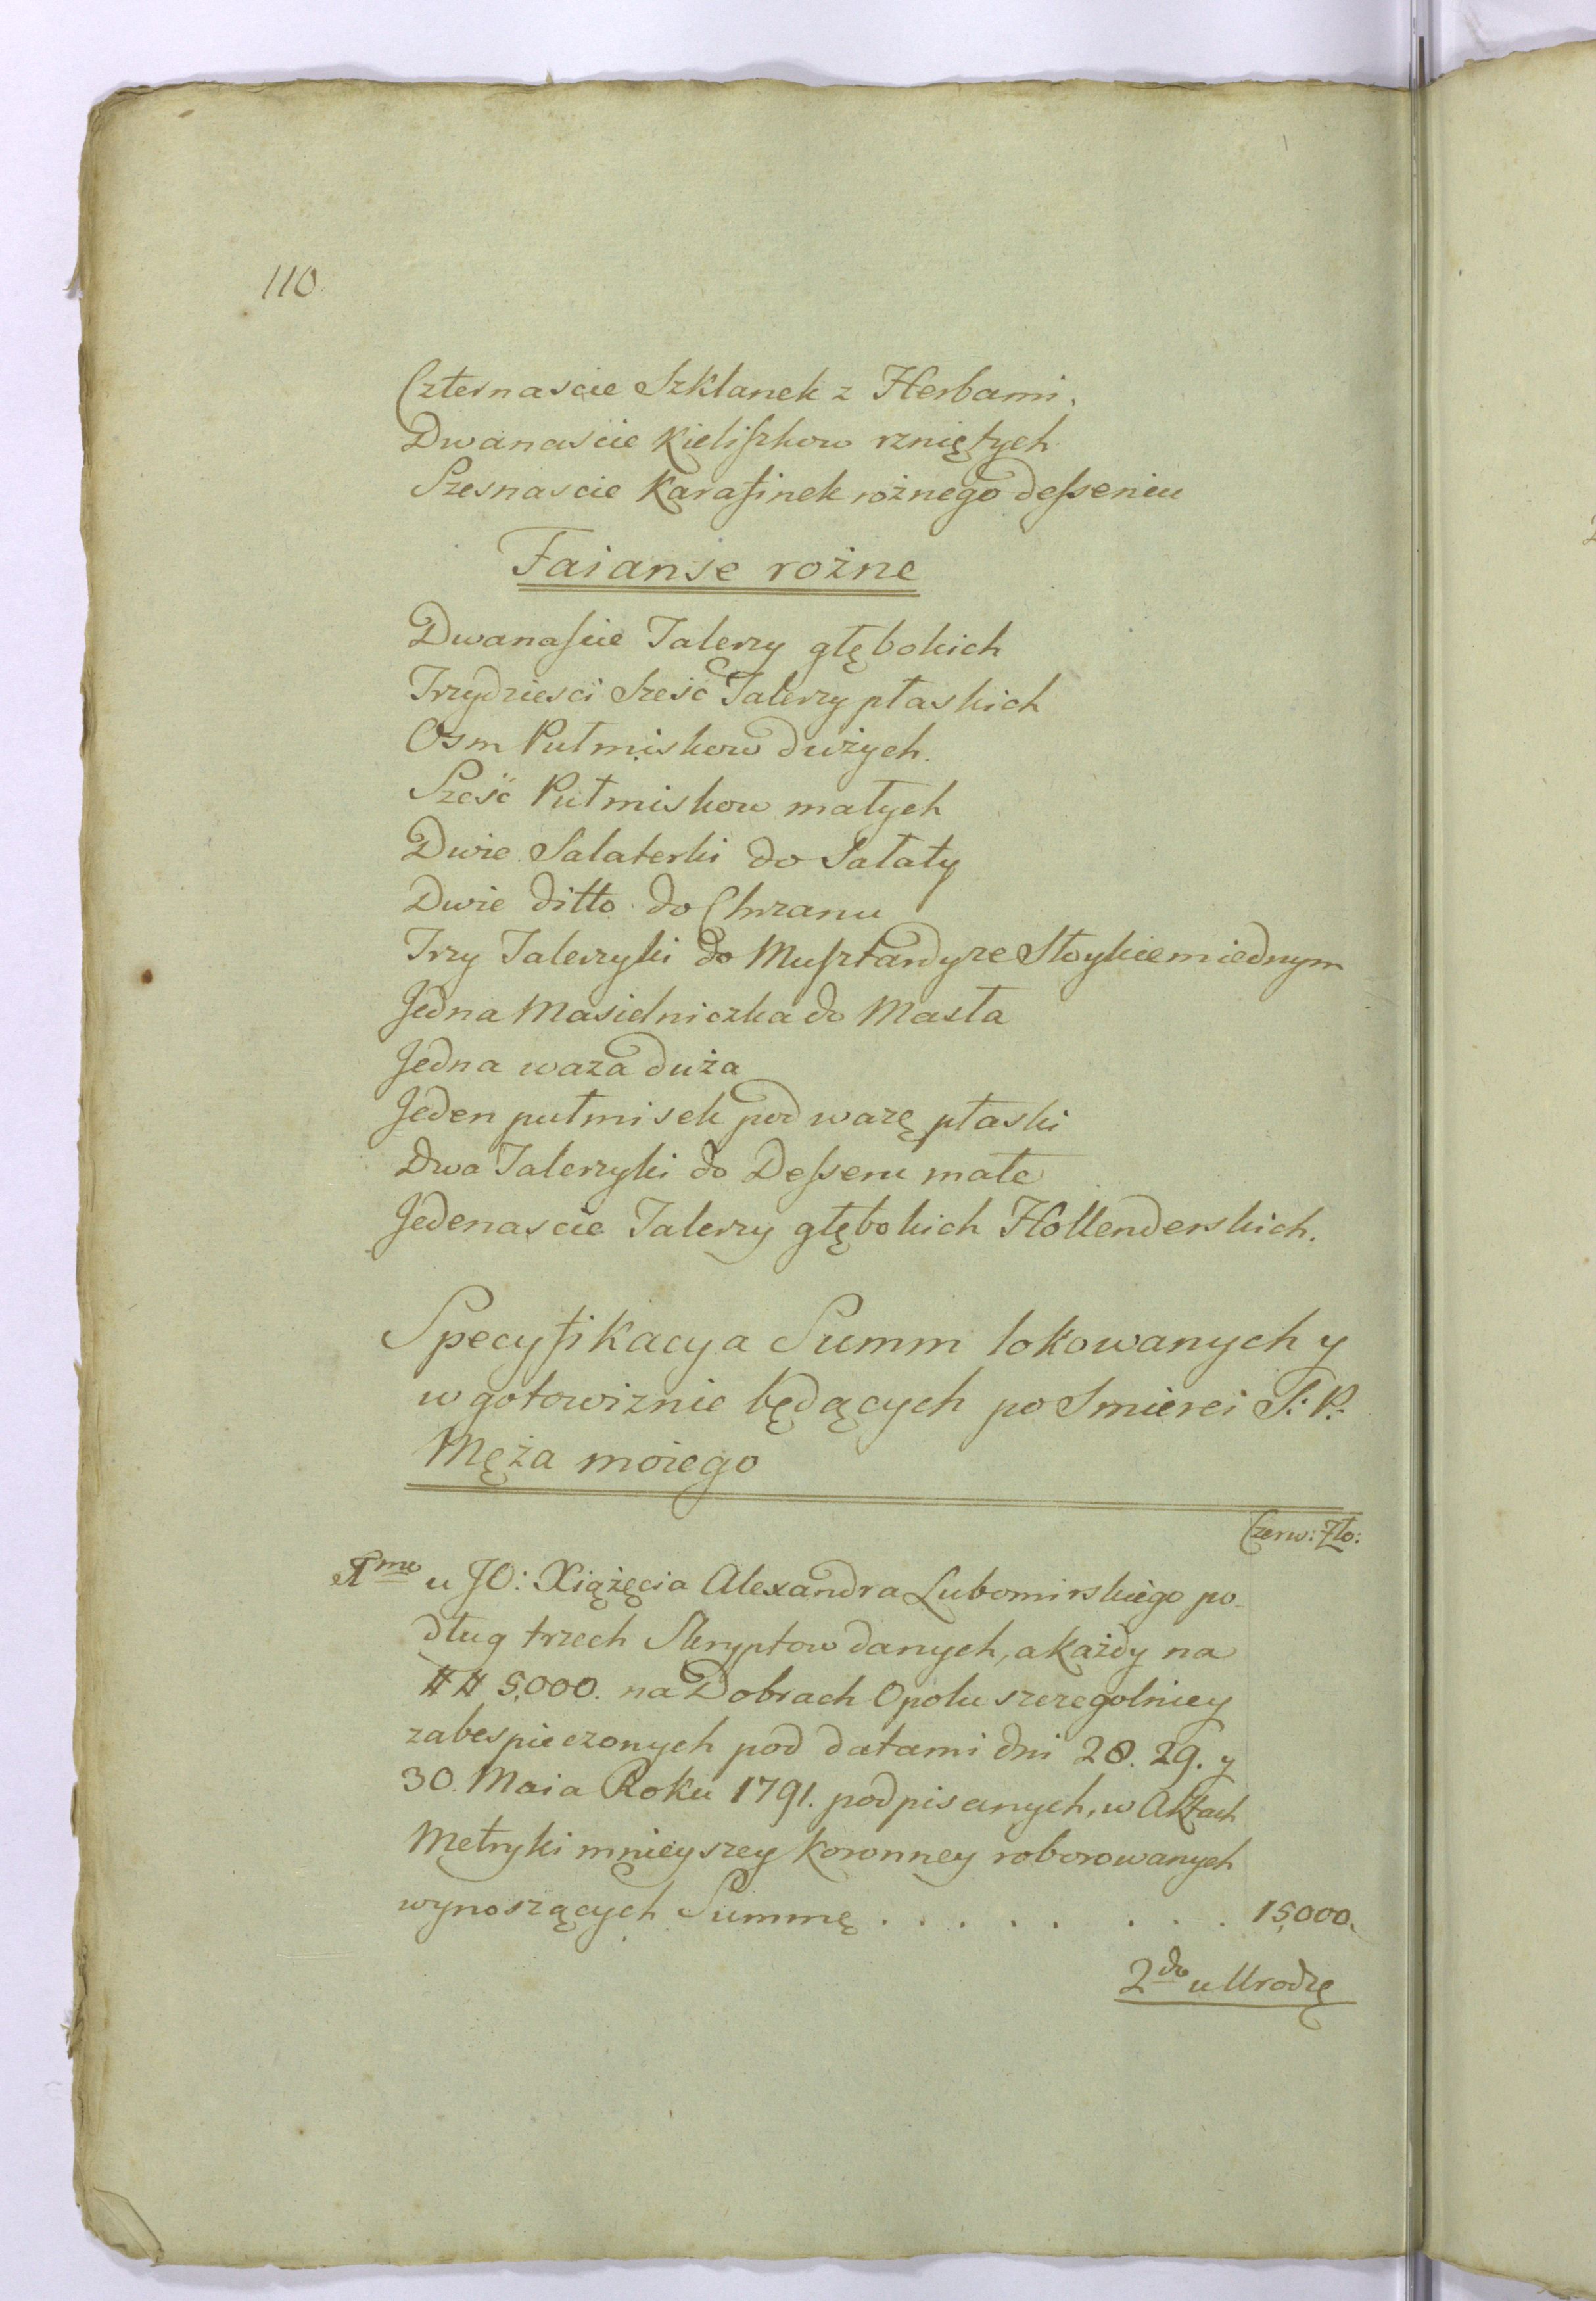 110
Czternascie Szklanek z Herbami.
Dwanascie Kieliszkow rzniętych
Szesnascie Karafinek rożnego desseniu
Faianse rożne
Dwanaście Talerzy głębokich
Trzydziesci Sześć Talerzy płaskich
Osm Pułmiskow dużych.
Sześć Pułmiskow małych
Dwie Salaterki do Sałaty
Dwie ditto do Chrzanu
Trzy Talerzyki do Musztardy ze Słoykiem iednym
Jedna Masielniczka do Masła
Jedna waza duża
Jeden pułmisek pod wazę płaski
Dwa Talerzyki do Desseru małe
Jedenascie Talerzy głębokich Hollenderskich.
Specyfikacya Summ lokowanych y
w gotowiznie będących po Smierci S: P:
Męża moiego
Czerw: Zło:
1mo u JO: Xiążęcia Alexandra Lubomirskiego po-
dług trzech Skryptow danych, a każdy na
## 5,000. na Dobrach Opolu szczegolniey
zabespieczonych pod datami dni 28. 29. y
30. Maia Roku 1791. podpisanych, w Aktach
Metryki mnieyszey Koronney roborowanych
wynoszących Summę . . . . . . . . 15,000.
2do u Urodzę